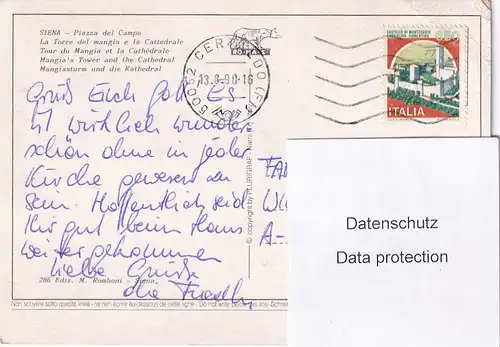 SIENA - Piazza del Campo
La Torre del mangia e la Cattedrale
Tour du Mangia et la Cathédrale
Mangia's Tower and the Cathedral
Mangiasturm und die Kathedral
ROMA-S
50052 CERTALDO (FI)
13.8-90-16
CASTELLO DI MONTECCHIO
CASTIGLION FIORENTINO
ITALIA
Grüß Euch Gott Es
ist wirklich wunder
schön ohne in jeder
Kirche gewesen zu
sein. Hoffentlich seid
Ihr gut beim Haus
weiter gekommen
Liebe Grüße
die
© copyright by PLURIGRAF
FA
A-
Datenschutz
Data protection
286 Ediz. M. Romboni - Siena
Non scrivere sotto questa linea - ne rien écrire au-dessous de cette ligne - Do not write below this line